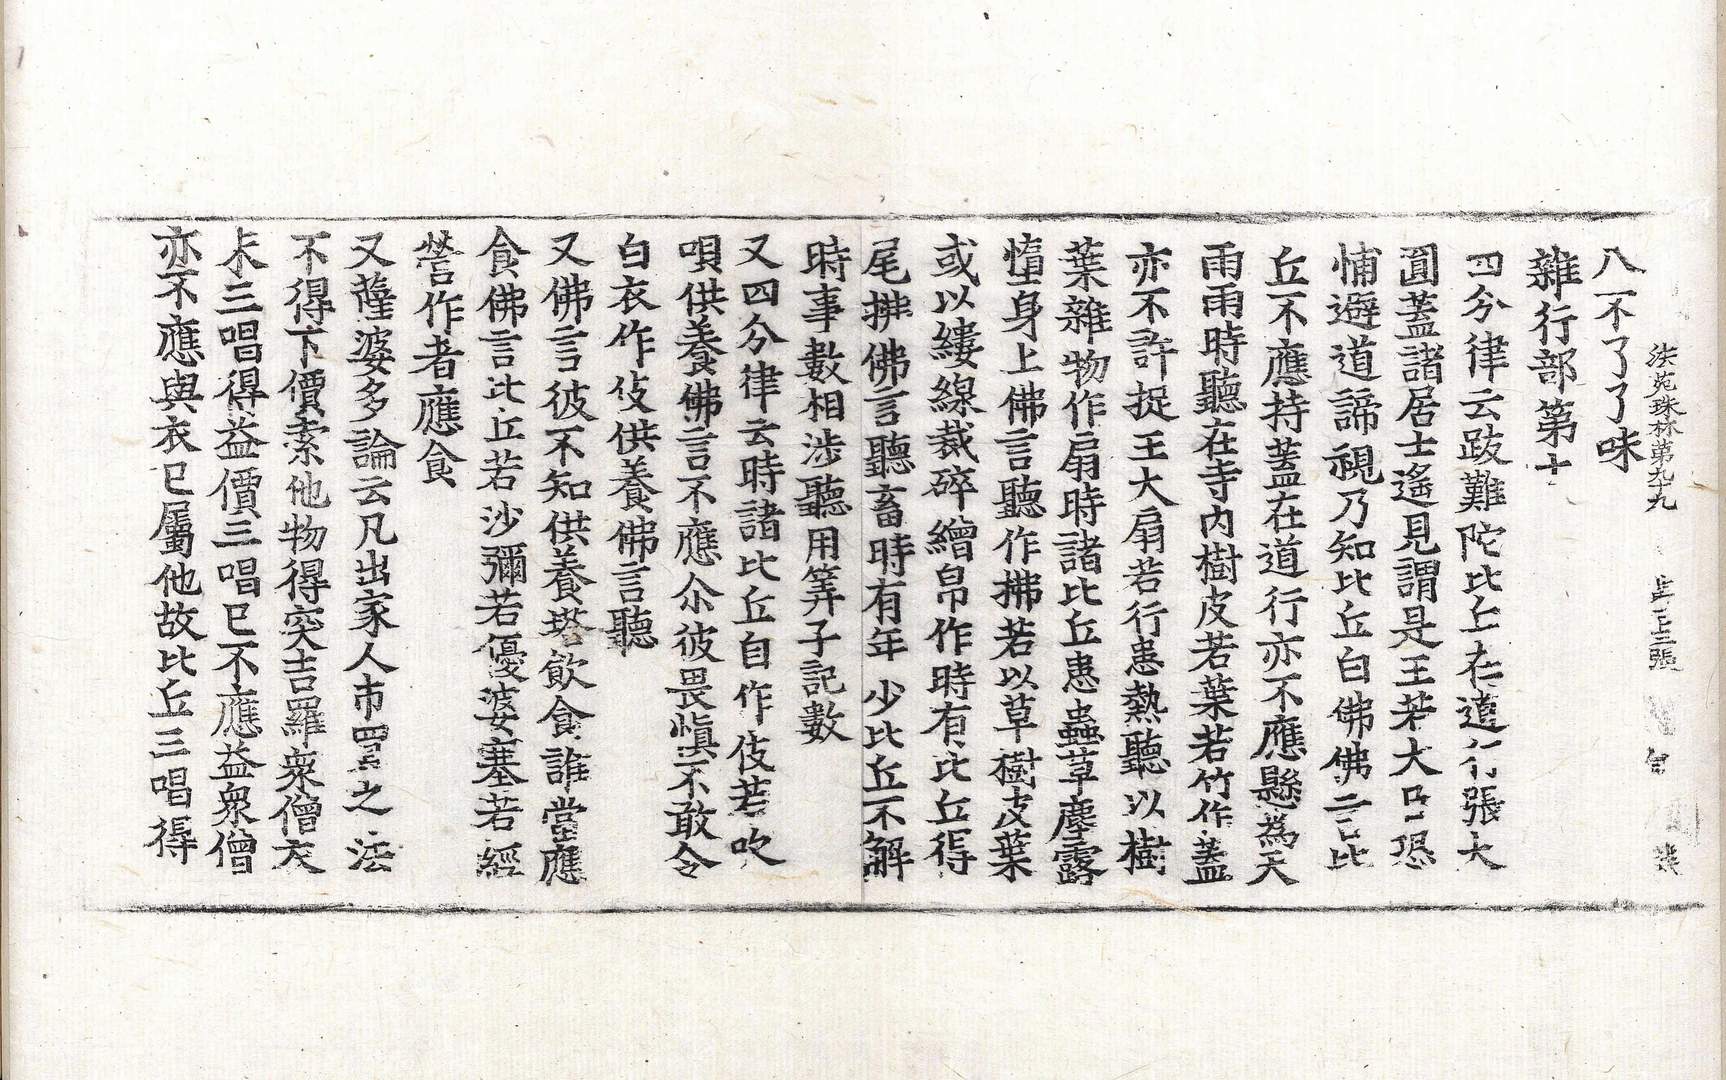 法苑珠林第九十九
八不了了味
雜行部第十
四分律云跋難陀比丘在道行張大
圓蓋諸居士遙見謂是王若大臣恐
怖避道諦視乃知比丘白佛佛言比
丘不應持蓋在道行亦不應懸為天
雨雨時聽在寺內樹皮若葉若竹作蓋
亦不許捉王大扇若行患熱聽以樹
葉雜物作扇時諸比丘患蟲草塵露
墮身上佛言聽作拂若以草樹皮葉
或以縷線裁碎繒帛作時有比丘得
尾拂佛言聽畜時有年少比丘不解
時事數相涉聽用筭子記數
又四分律云時諸比丘自作伎若吹
唄供養佛言不應尒彼畏慎不敢令
白衣作伎供養佛言聽
又佛言彼不知供養塔飲食誰當應
食佛言比丘若沙彌若優婆塞若經
營作者應食
又薩婆多論云凡出家人市買之法
不得下價索他物得突吉羅衆僧衣
未三唱得益價三唱已不應益衆僧
亦不應與衣已屬他故比丘三唱得